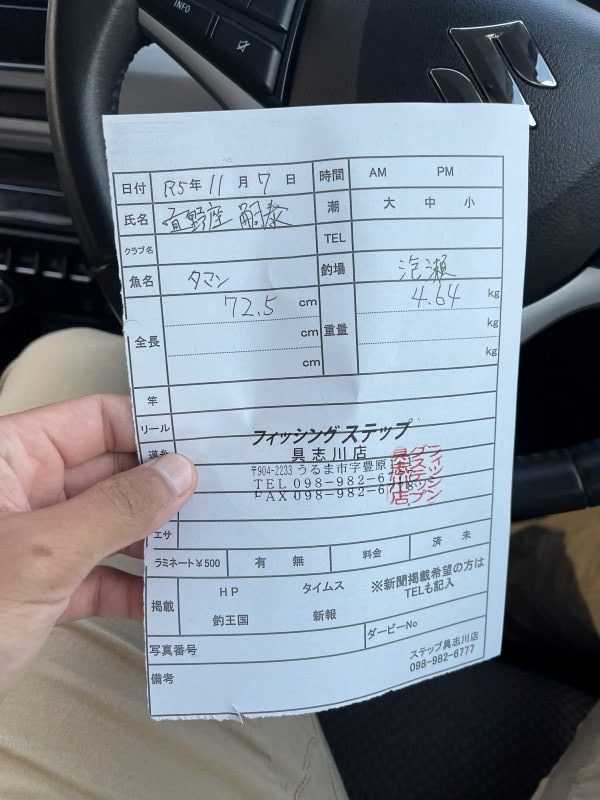 INFO
日付 R5年 11 月 7 日 時間 AM PM
氏名 宜野座 嗣泰 潮 大 中 小
クラブ名 TEL
魚名 タマン 釣場 泡瀬
全長 72.5 cm 重量 4.64 kg
cm kg
cm kg
竿
リール
道糸
フィッシングステップ
具志川店
〒904-2233 うるま市字豊原
TEL 098-982-67
FAX 098-982-6778
フィッシング
ステップ
具志川店
エサ
ラミネート¥500 有 無 料金 済 未
掲載 HP タイムス ※新聞掲載希望の方は
TELも記入
釣王国 新報
写真番号 ダービーNo
備考 ステップ具志川店
098-982-6777